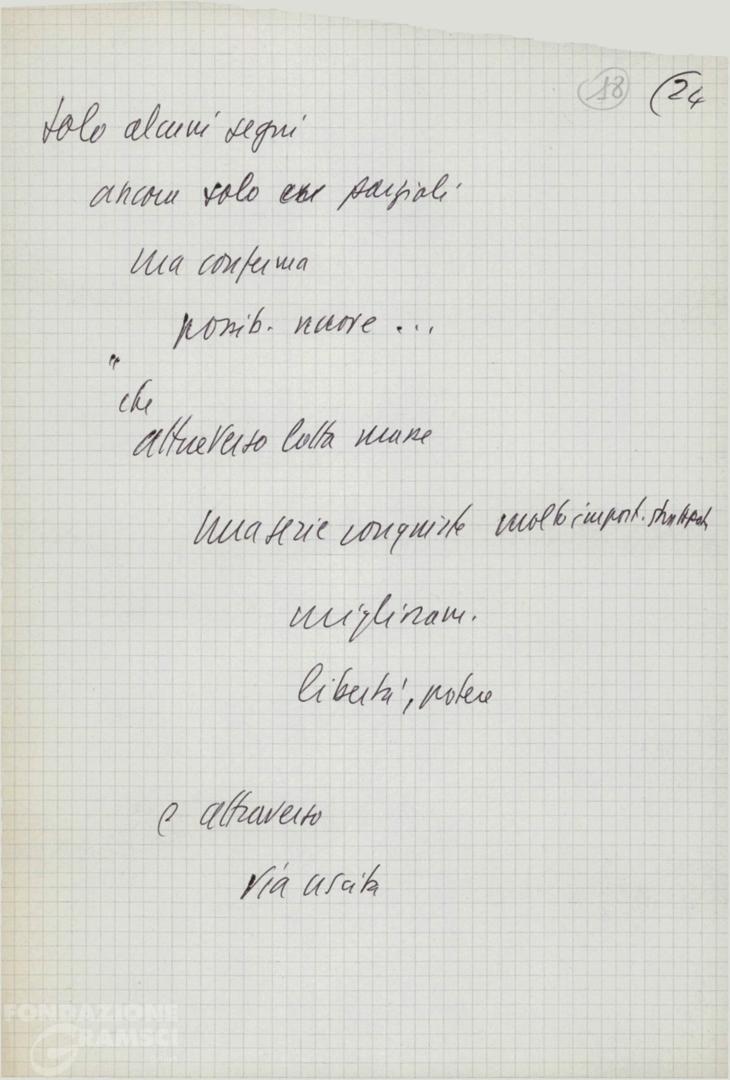 18 (24
solo alcuni segni
ancora solo parziali
ma conferma
possib. nuove ...
"
che
attraverso lotta masse
una serie conquiste molto import.
miglioram.
libertà, potere
e attraverso
via uscita
FONDAZIONE
GRAMSCI